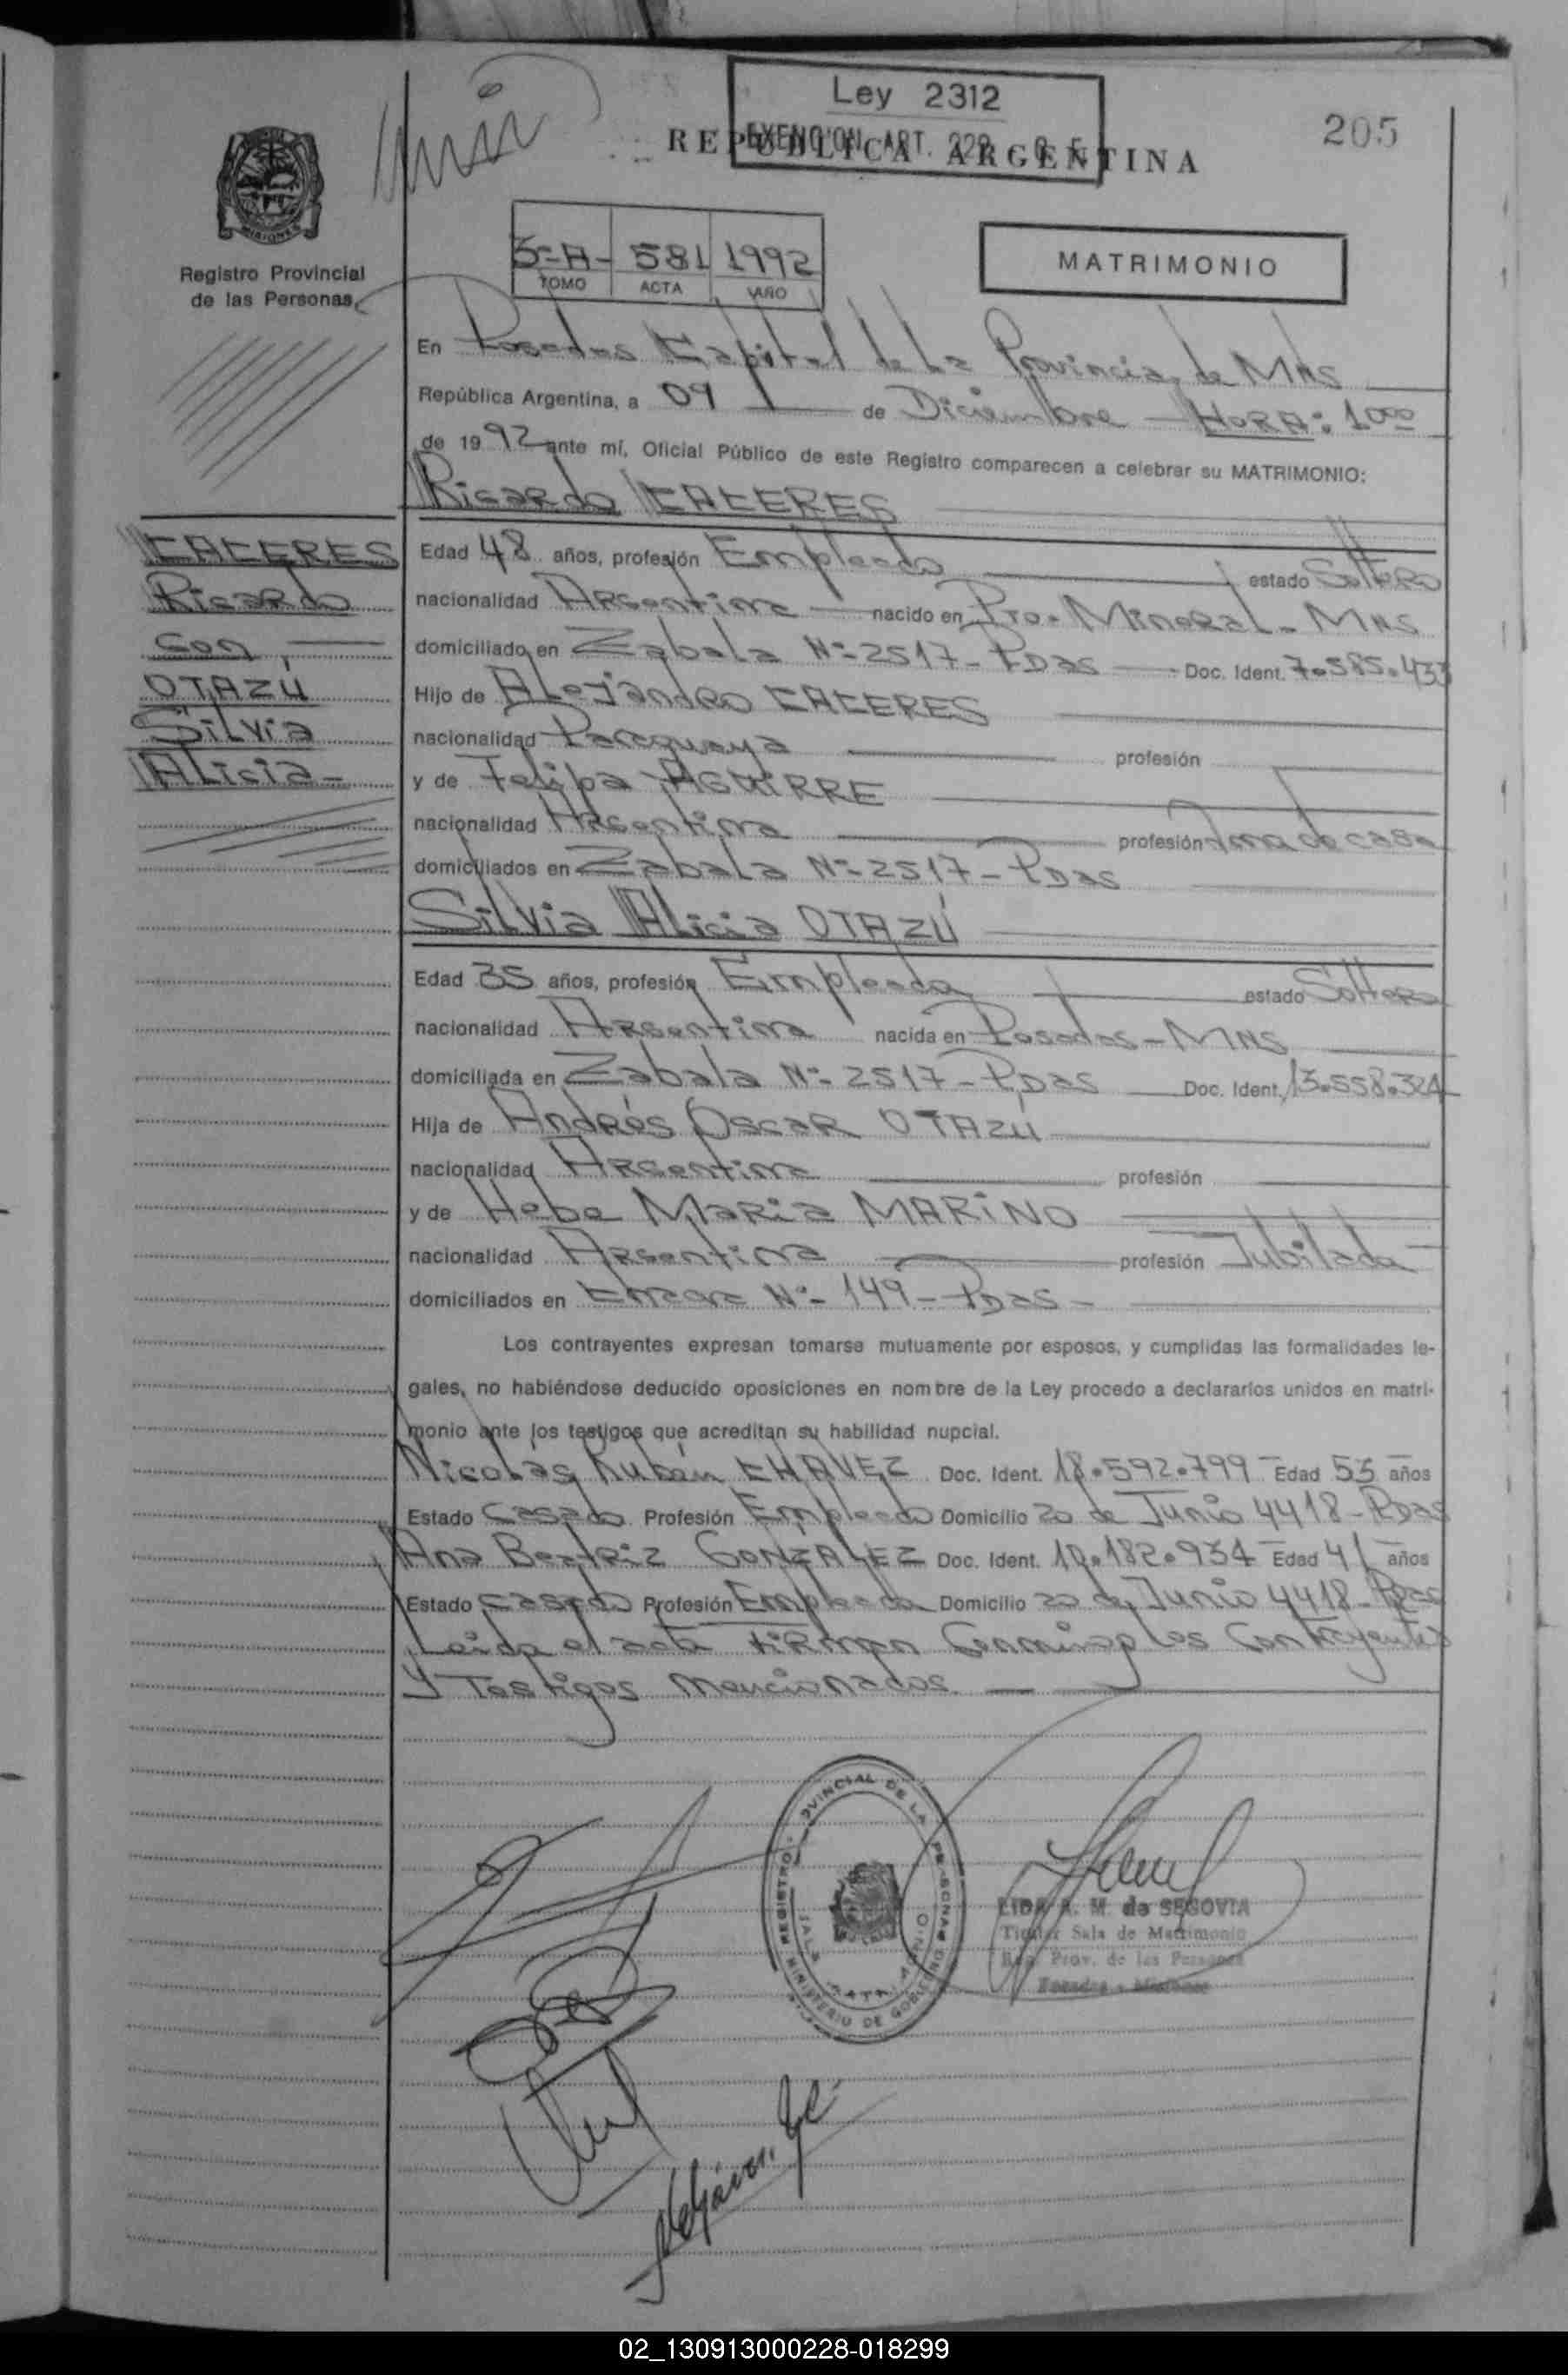 Ley 2312
EXENCION ART. 229
REPUBLICA ARGENTINA
205
MISIONES
Registro Provincial
de las Personas
3-A- 581 1992
TOMO ACTA AÑO
MATRIMONIO
En Posadas Capital de La Provincia de MNS
República Argentina, a 09 de Diciembre HORA: 10ºº
de 1992 ante mí, Oficial Público de este Registro comparecen a celebrar su MATRIMONIO:
Ricardo CACERES
CACERES
Ricardo
con,
OTAZÚ
Silvia
Alicia-
Edad 48 años, profesión Empleado estado Soltero
nacionalidad Argentina nacido en Pto. Mineral - MNS
domiciliado en Zabala Nº 2517 - Pdas Doc. Ident. 7.585.433
Hijo de Alejandro CACERES
nacionalidad Paraguaya profesión
y de Felipa AGUIRRE
nacionalidad Argentina profesión Ama de casa
domiciliados en Zabala Nº 2517 - Pdas
Silvia Alicia OTAZÚ
Edad 35 años, profesión Empleada estado Soltera
nacionalidad Argentina nacida en Posadas - MNS
domiciliada en Zabala Nº 2517 - Pdas Doc. Ident. 13.558.324
Hija de Andrés Oscar OTAZÚ
nacionalidad Argentina profesión
y de Hebe Maria MARIÑO
nacionalidad Argentina profesión Jubilada
domiciliados en Nº 149 - Pdas -
Los contrayentes expresan tomarse mutuamente por esposos, y cumplidas las formalidades le-
gales, no habiéndose deducido oposiciones en nombre de la Ley procedo a declararlos unidos en matri-
monio ante los testigos que acreditan su habilidad nupcial.
Nicolás Rubén CHAVEZ Doc. Ident. 18.592.799 Edad 53 años
Estado Casado Profesión Empleado Domicilio 20 de Junio 4418 - Pdas
Ana Beatriz GONZALEZ Doc. Ident. 10.182.934 Edad 41 años
Estado Casada Profesión Empleada Domicilio 20 de Junio 4418 - Pdas
Leida el acta firman Conmigo los Contrayentes
Y Testigos mencionados
REGISTRO PROVINCIAL DE LA PERSONAS
SALA MATRIMONIO
MINISTERIO DE GOBIERNO
LIDA A. M. de SEGOVIA
Titular Sala de Matrimonio
Reg. Prov. de las Personas
Posadas - Misiones
02_130913000228-018299